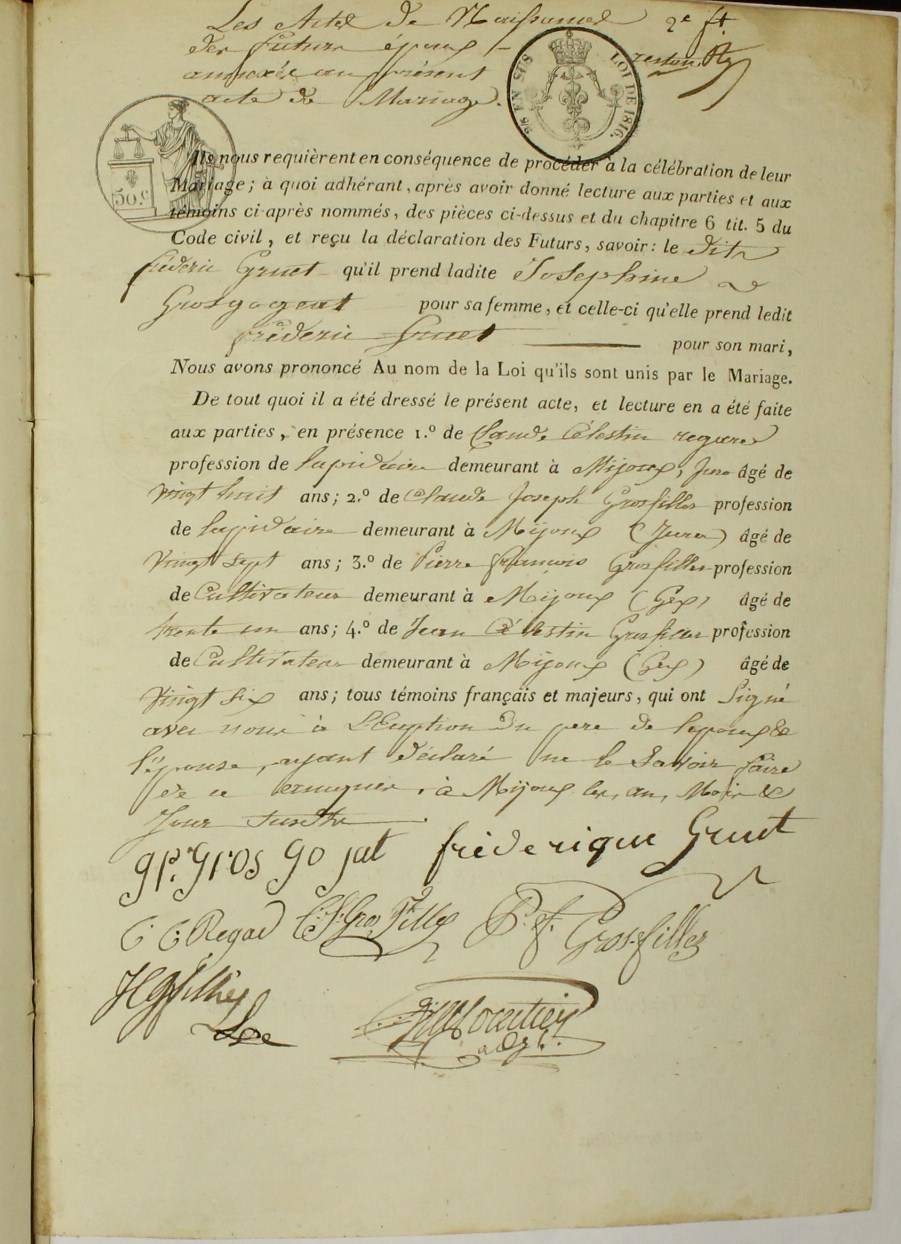 Les Actes de Naissances
des Futurs époux
annexés au présent
acte de Mariage.
2e ft.
2/10 EN SUS LOI DE 1816.
50.c
Ils nous requièrent en conséquence de procéder à la célébration de leur
Mariage; à quoi adhérant, après avoir donné lecture aux parties et aux
témoins ci-après nommés, des pièces ci-dessus et du chapitre 6 tit. 5 du
Code civil, et reçu la déclaration des Futurs, savoir: le dit
fréderic Gruet qu'il prend ladite Josephine
Grosgogeat pour sa femme, et celle-ci qu'elle prend ledit
fréderic Gruet pour son mari,
Nous avons prononcé Au nom de la Loi qu'ils sont unis par le Mariage.
De tout quoi il a été dressé le présent acte, et lecture en a été faite
aux parties, en présence 1.º de Claude Célestin regard
profession de lapidaire demeurant à Mijoux, Jura âgé de
vingt huit ans; 2.º de Claude Joseph Grosfilley profession
de lapidaire demeurant à Mijoux (Jura) âgé de
vingt sept ans; 3.º de Pierre françois Grosfilley profession
de Cultivateur demeurant à Mijoux (Gex) âgé de
trente un ans; 4.º de Jean Célestin Grosfilley profession
de Cultivateur demeurant à Mijoux (Gex) âgé de
vingt six ans; tous témoins français et majeurs, qui ont Signé
avec nous à L'Exeption du pere de lepoux &
l'épouse, ayant déclaré ne le Savoir faire
de ce enquis, à Mijoux les, an, Mois &
Jour susdits
gp. Gros go jat fréderique Gruet
C C Regad C. J. Gros Filley P. f. Grosfilley